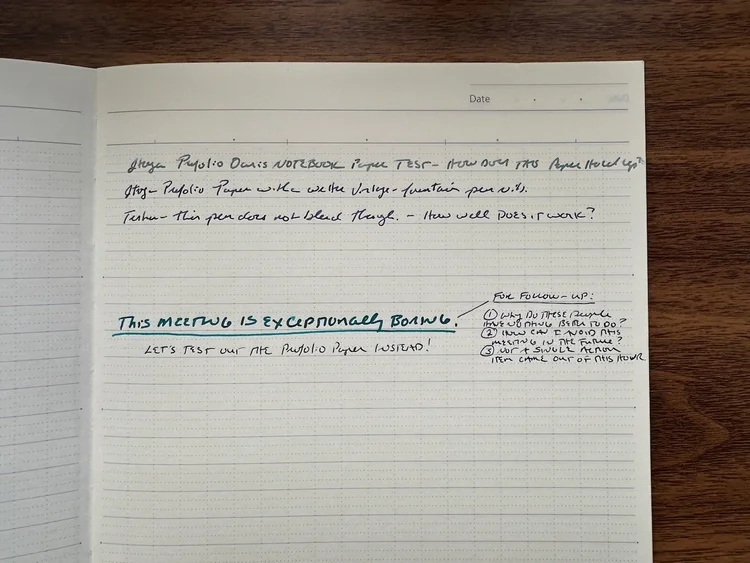 Date
Itoya Profolio Oasis NOTEBOOK Paper TEST - HOW DOES THIS Paper Hold up?
Itoya Profolio Paper with a wetter fountain pen nib.
this pen does not bleed though. - How well DOES IT work?
FOR FOLLOW-UP:
THIS MEETING IS EXCEPTIONALLY BORING.
① WHY DO THESE PEOPLE
HAVE NOTHING BETTER TO DO?
② HOW CAN I AVOID THIS
MEETING IN THE FUTURE?
③ NOT A SINGLE ACTION
ITEM CAME OUT OF THIS HOUR
LET'S TEST OUT THE Profolio Paper INSTEAD!